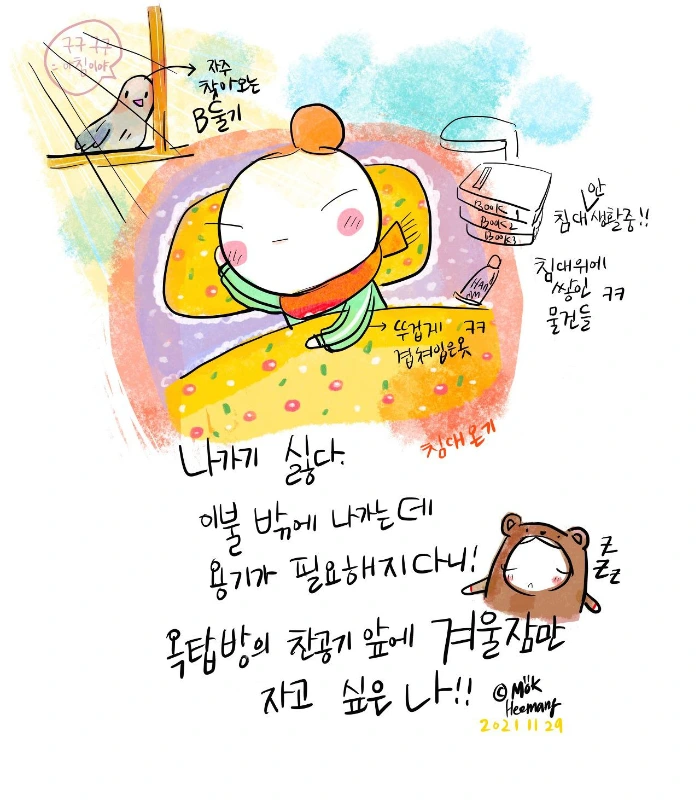 구구 구구
아침이야
자주
찾아오는
B둘기
BOOK 1
BOOK 2
BOOK 3
안
침대 생활중!!
침대위에
쌓인 ㅋㅋ
물건들
HAND
뚜껍게 ㅋㅋ
겹쳐입은옷
침대온기
나가기 싫다.
이불 밖에 나가는데
용기가 필요해지다니!
Z
Z
Zz
옥탑방의 찬공기 앞에 겨울잠만
자고 싶은 나!!
©Mök
Heemang
2021 11 29